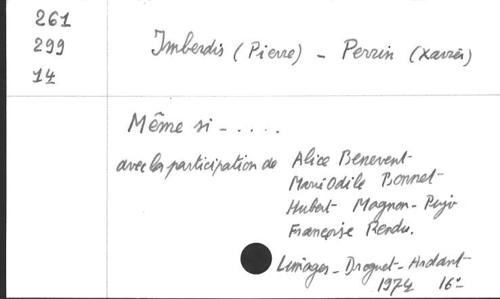 261
299
14
Imberdis (Pierre) - Perrin (Xavier)
Même si - ....
avec la participation de Alice Benevent-
Marie Odile Bonnet-
Hubert Magnon-Pujo
Françoise Rendu.
Limoges - Droguet-Ardant
1974 16°